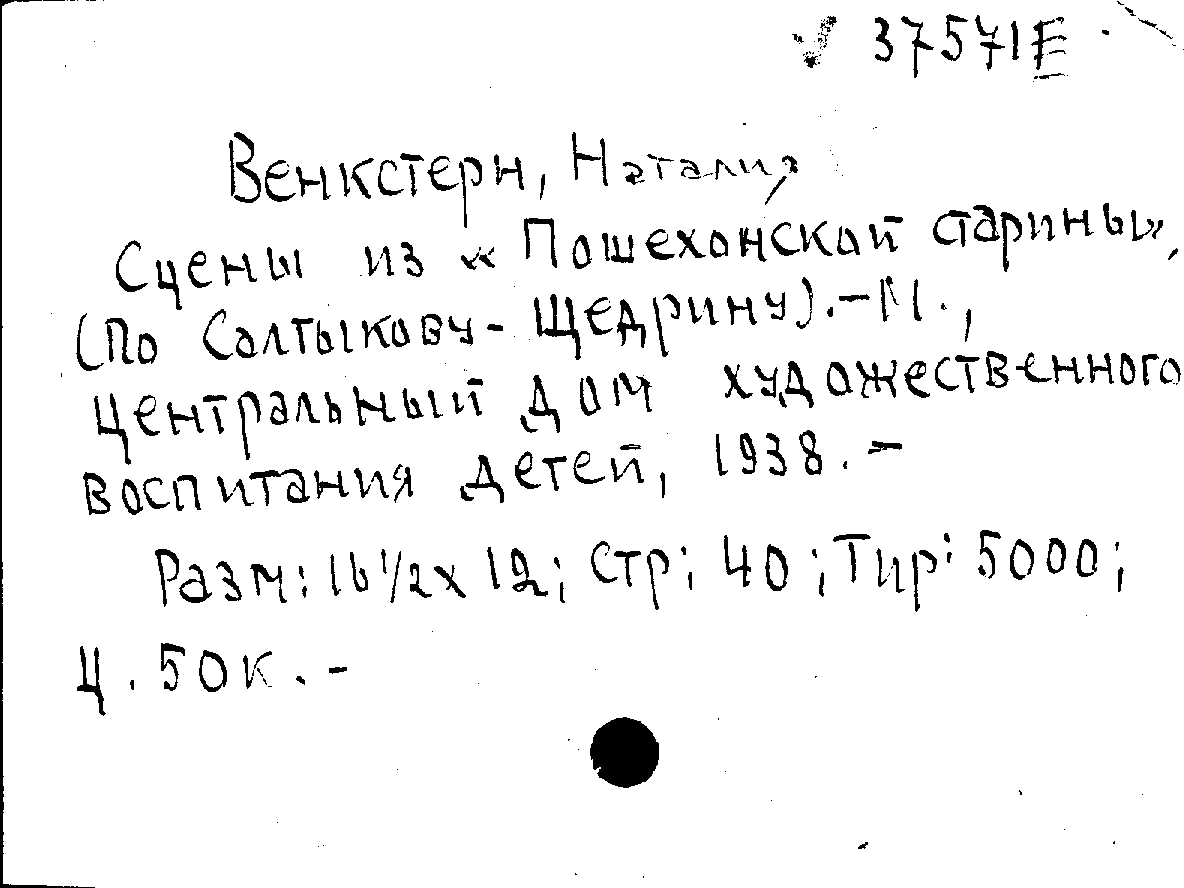 ✓ 37571E
Венкстерн, Наталия
Сцены из «Пошехонской старины»,
(По Салтыкову-Щедрину).-М.,
центральный дом художественного
воспитания детей, 1938.-
Разм: 16 1/2 x 12; Стр: 40; Тир: 5000;
Ц. 50к.-